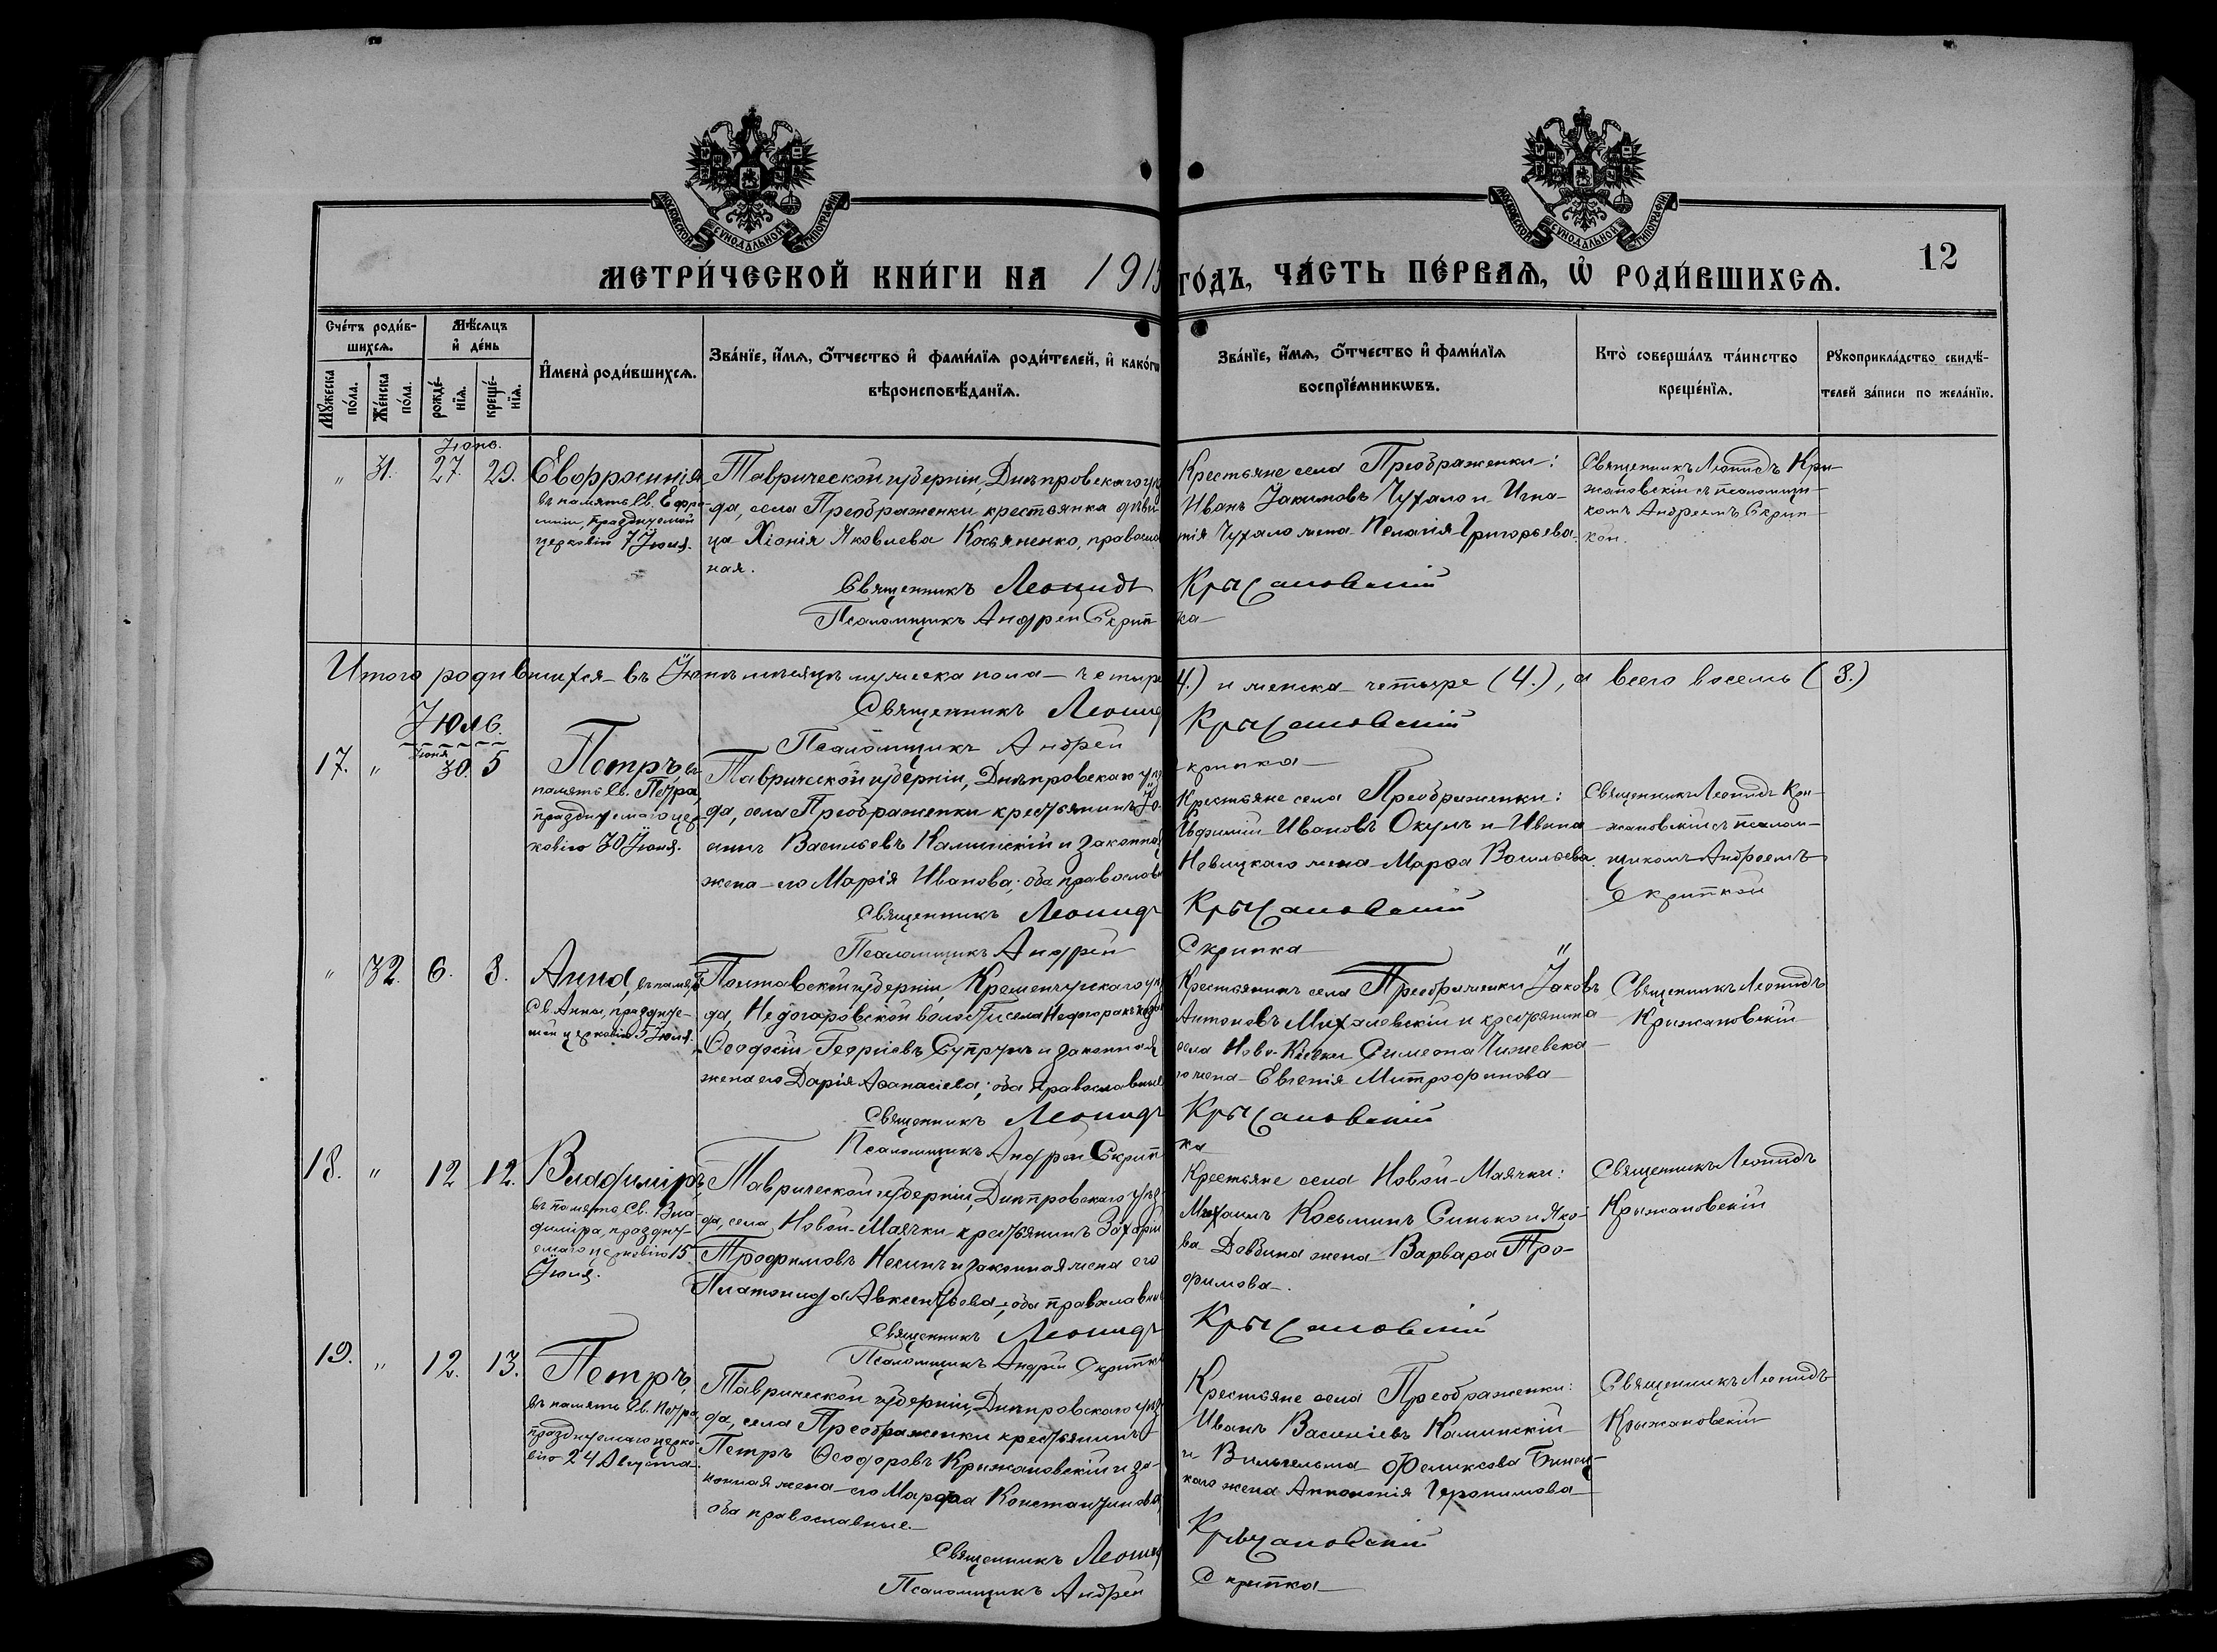 МОСКОВСКОЙ СѴНОДАЛЬНОЙ ТИПОГРАФІИ
МОСКОВСКОЙ СѴНОДАЛЬНОЙ ТИПОГРАФІИ
12
МЕТРИ́ЧЕСКОЙ КНИ́ГИ НА 1915 ГО́ДЪ, ЧА́СТЬ ПЕ́РВАѦ, Ѡ҆ РОДИ́ВШИХСѦ.
Сче́тъ роди́в-
шихсѧ.
Мꙋ́жеска по́ла.
Же́нска по́ла.
Мѣ́сѧцъ
и҆ де́нь
рожде́-
нїѧ.
креще́-
нїѧ.
И҆мена̀ роди́вшихсѧ.
Зва́нїе, и҆́мѧ, ѻ҆́тчество и҆ фами́лїѧ роди́телей, и҆ како́гѡ
вѣроисповѣ́данїѧ.
Зва́нїе, и҆́мѧ, ѻ҆́тчество и҆ фами́лїѧ
воспрїе́мникѡвъ.
Кто̀ соверша́лъ та́инство
креще́нїѧ.
Рꙋкоприкла́дство свидѣ́-
телей за́писи по жела́нїю.
Іюнь.
" 31. 27. 29. Евфросинія
въ память Св. Ефро-
синіи, празднуемой
церковію 7 Іюля.
Таврической губерніи, Днѣпровскаго уѣз
да, села Преображенки крестьянка дѣви
ца Хіонія Яковлева Косьяненко, правосла
ная.
Священникъ Леонидъ Крыжановскій
Псаломщикъ Андрей Скрипка
Крестьяне села Преображенки:
Иванъ Іакимовъ Чухало и Игна-
тія Чухало жена Пелагія Григорьева.
Священникъ Леонидъ Кри-
жановскій съ псаломщи-
комъ Андреемъ Скрип-
кой.
Итого родившихся въ Іюнѣ мѣсяцѣ мужеска пола четыре 4.) и женска четыре (4.), а всего восемь (8.)
Священникъ Леонид Крыжановскій
Псаломщикъ Андрей Скрипка
Іюль.
17. " Іюня 30. 5 Петръ, въ
память Св. Петра,
празднуемаго цер-
ковію 30 Іюня.
Таврической губерніи, Днѣпровскаго уѣз
да, села Преображенки крестьянинъ Іо-
симъ Васильевъ Калинскій и законная
жена его Марія Иванова; оба православ
Священникъ Леонидъ Крыжановскій
Псаломщикъ Андрей Скрипка
Крестьяне села Преображенки:
Ефимій Ивановъ Окунь и Ивана
Новицкаго жена Марфа Васильева.
Священникъ Леонидъ Кри-
жановскій съ псалом-
щикомъ Андреемъ
Скрипкой
" 32. 6. 8. Анна, въ память
Св. Анны, праздну-
мой церковію 5 Іюля.
Полтавской губерніи, Кременчугскаго уѣз
да, Недогаровской волости села Недогаракъ
Ѳеодосій Георгіевъ Супрунъ и законная
жена его Дарія Аѳанасіева; оба православные
Священникъ Леонидъ Крыжановскій
Псаломщикъ Андрей Скрипка
Крестьянинъ села Преображенки Іаковъ
Антоновъ Михалевскій и крестьянина
села Ново-Кіевки Симеона Чижевска-
го жена Евгенія Митрофанова
Священникъ Леонидъ
Крыжановскій
18. " 12 12. Владиміръ,
въ память Св. Вла-
диміра, праздну-
емаго церковію 15
Іюля.
Таврической губерніи, Днѣпровскаго уѣз-
да, села Новой-Маячки крестьянинъ Захарій
Трофимовъ Некинъ и законная жена его
Платонида Авксентьева, оба православны
Священникъ Леонидъ Крыжановскій
Псаломщикъ Андрей Скрипка
Крестьяне села Новой-Маячки:
Михаилъ Косьминъ Синько и Яко-
ва Довбина жена Варвара Тро-
фимова.
Священникъ Леонидъ
Крыжановскій
19. " 12. 13. Петръ,
въ память Св. Петра,
празднуемаго церко-
вію 24 Августа.
Таврической губерніи, Днѣпровскаго уѣз
да, села Преображенки крестьянинъ
Петръ Ѳеодоровъ Крыжановскій и за-
конная жена его Марѳа Константинова,
оба православные.
Священникъ Леонид Крыжановскій
Псаломщикъ Андрей Скрипка
Крестьяне села Преображенки:
Иванъ Василіевъ Калинскій
и Вильгельма Феликсова
каго жена Антонія Іеронимова
Священникъ Леонидъ
Крыжановскій